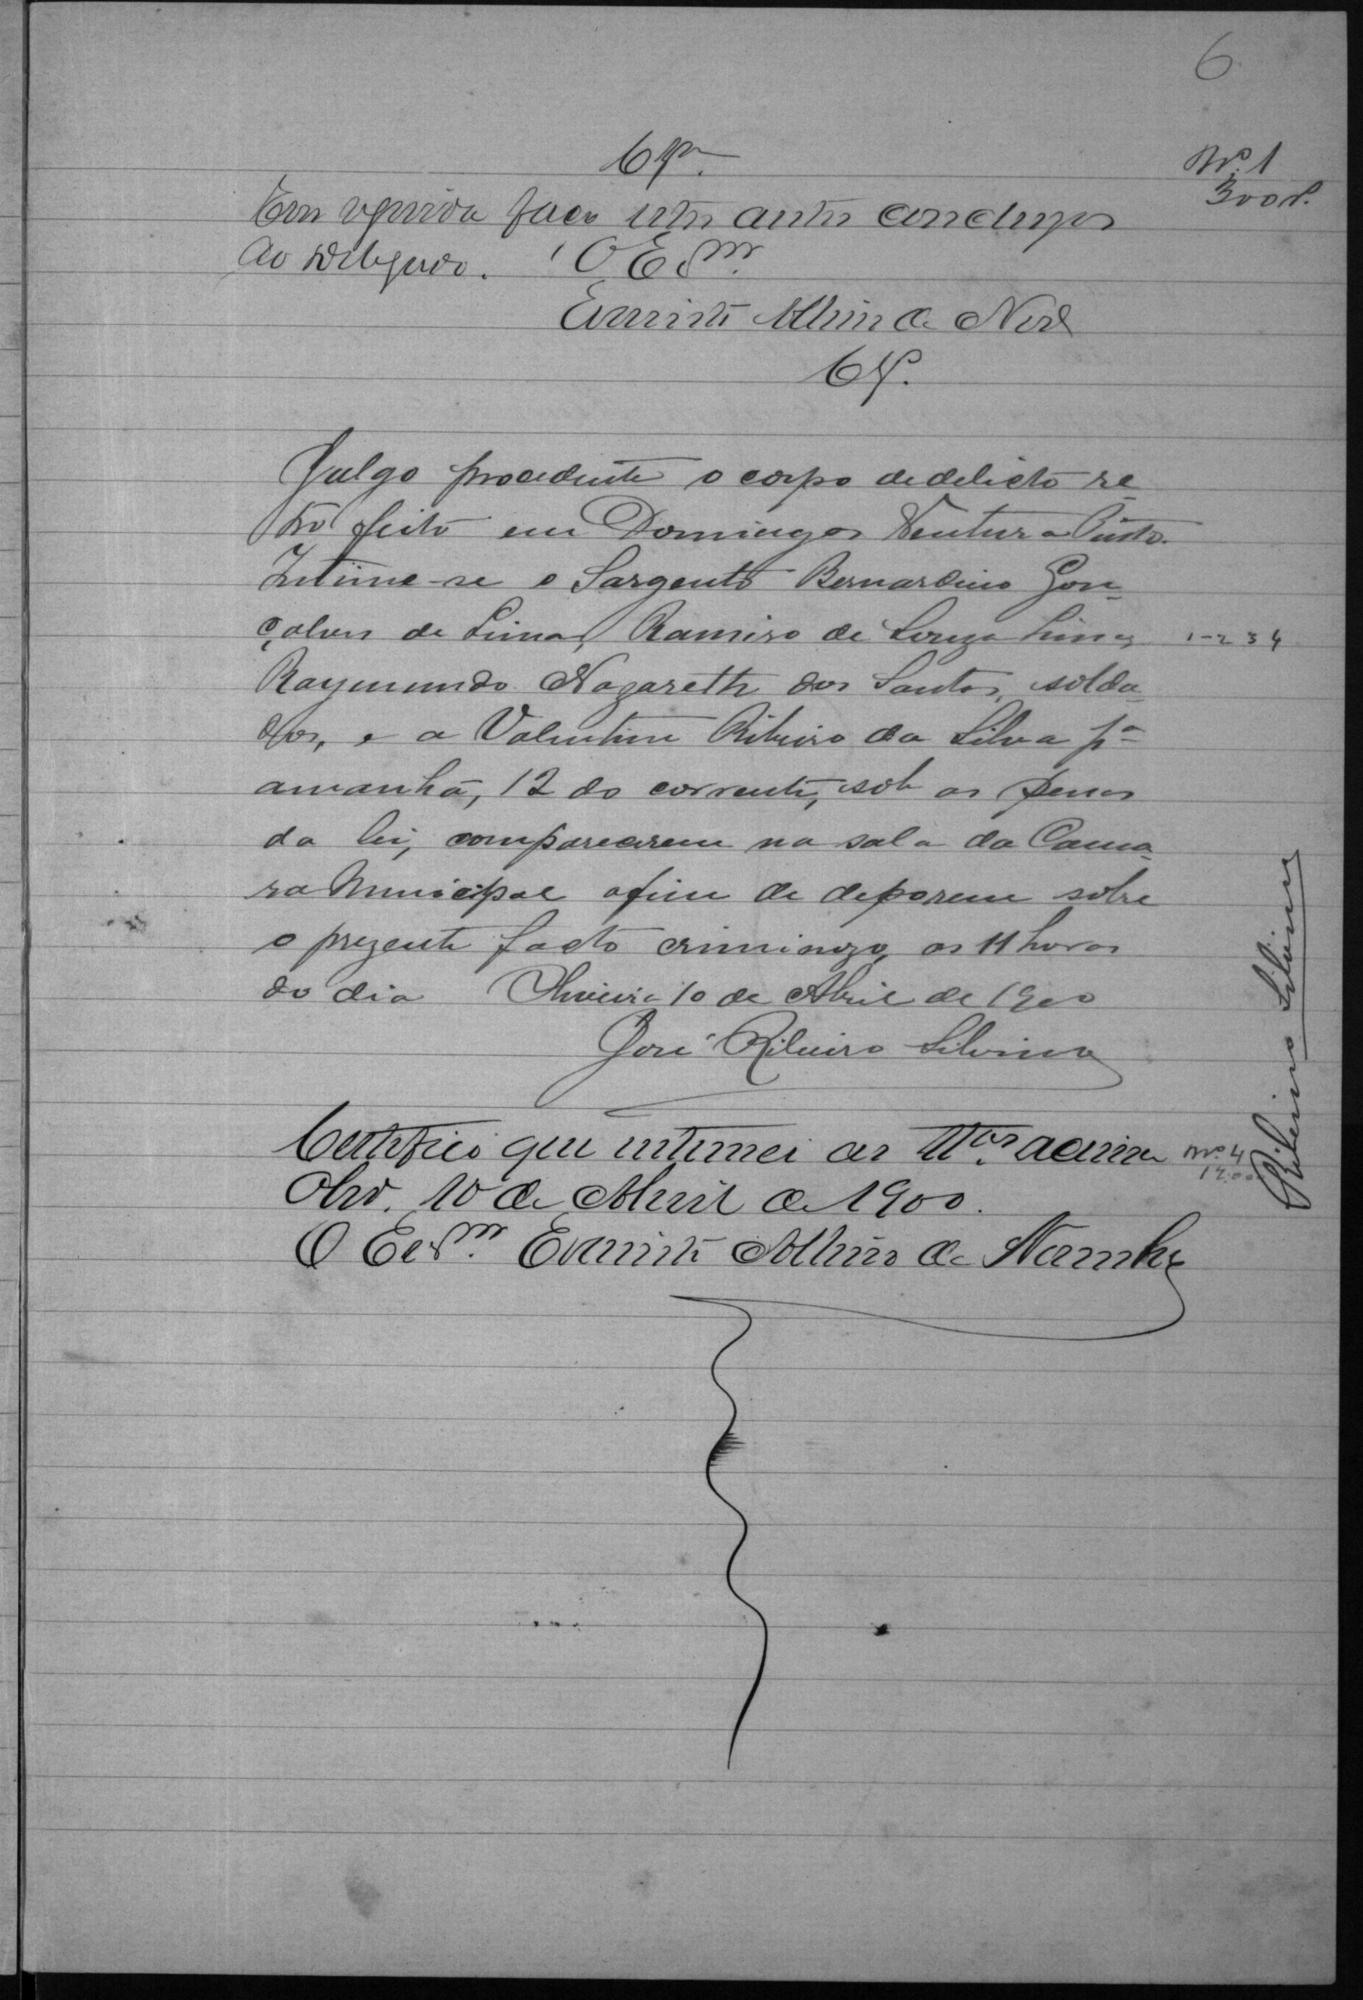 6
Clsm.
Nº. 1
300 r.
Em seguida faço estes autos conclusos
ao Delegado. O Escm.
Evaristo Albino de
Cls.
Julgo procedente o corpo de delicto re
tro feito em Domingos Ventura Pinto.
Intime-se o Sargento Bernardino Gon-
çalves de Lima, Ramiro de Souza Lima, 1-2 3 4
Raymundo Nazareth dos Santos, solda-
dos, e a Valentim Ribeiro da Silva pª
amanhã, 12 do corrente, sob as penas
da lei, comparecerem na sala da Cama-
ra Municipal afim de deporem sobre
o prezente facto criminozo, as 11 horas
do dia Oliveira 10 de Abril de 1900
José Ribeiro Silvino
Certifico que intimei as ttas. acima
Nº. 4
Olivª. 10 de Abril de 1900.
O Escm. Evaristo Albino de
Ribeiro Silvino